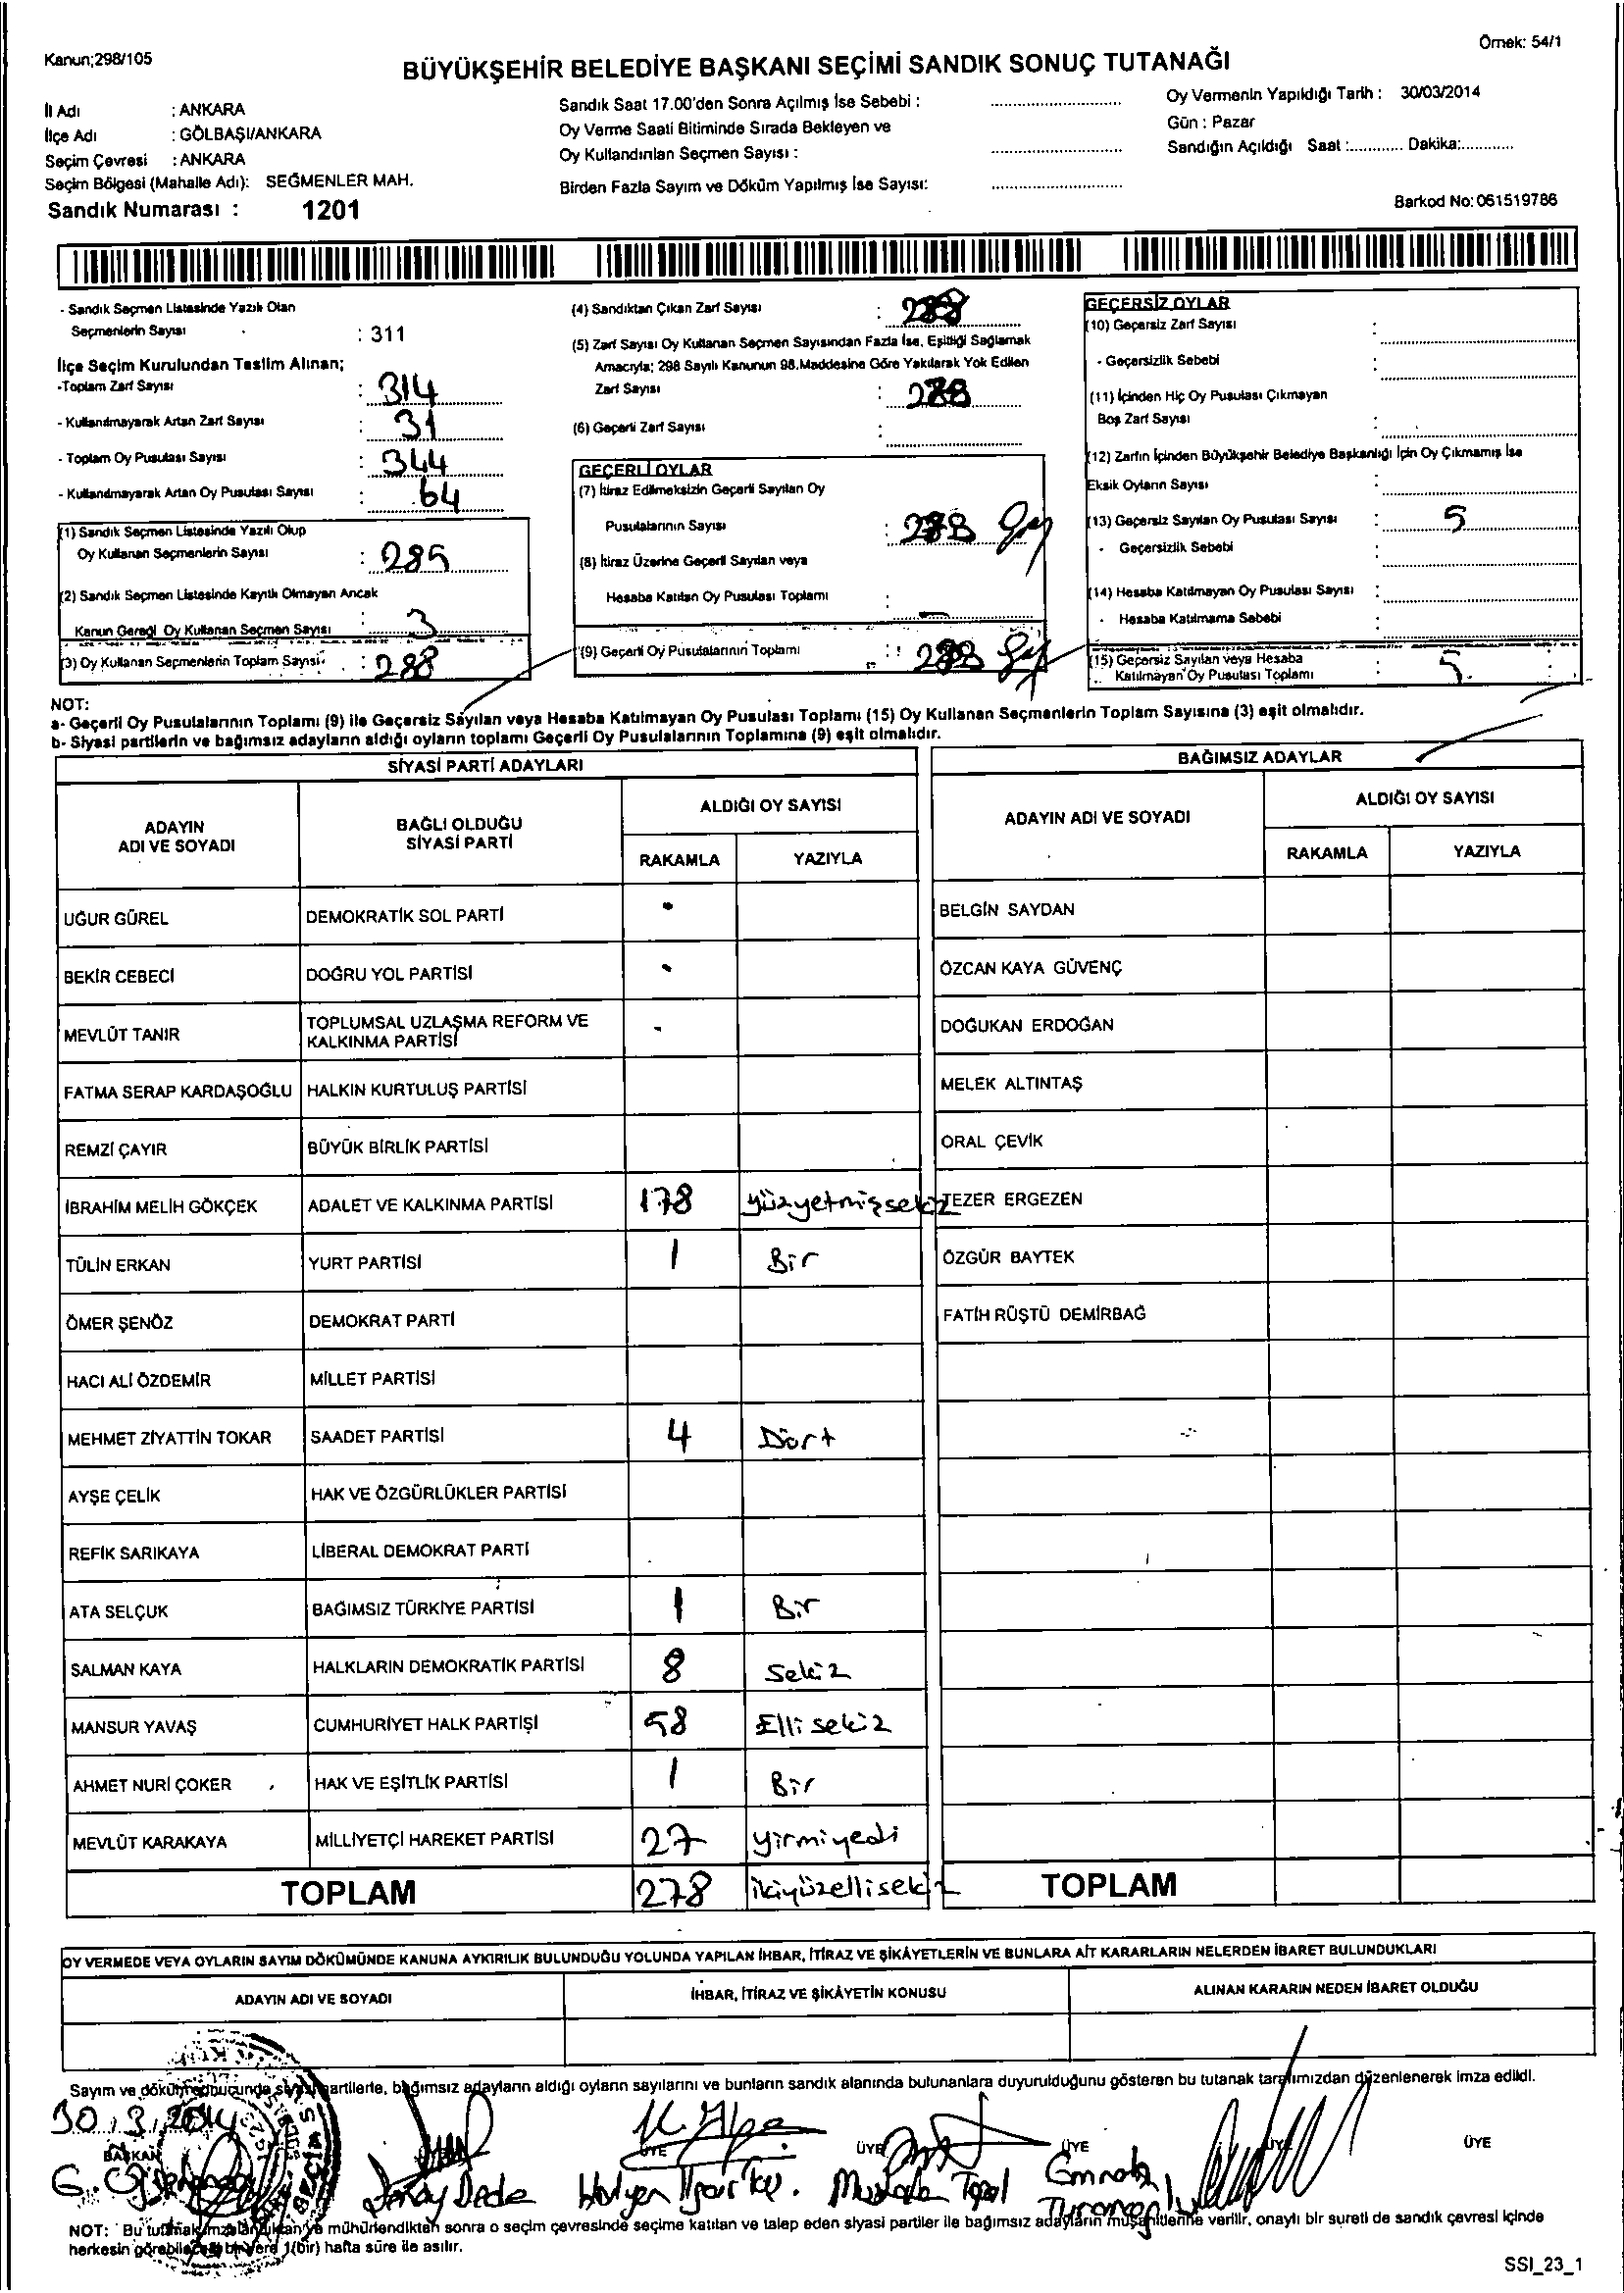 Kanun;298/105
Örnek: 54/1
BÜYÜKŞEHİR BELEDİYE BAŞKANI SEÇİMİ SANDIK SONUÇ TUTANAĞI
İl Adı : ANKARA
İlçe Adı : GÖLBAŞI/ANKARA
Seçim Çevresi : ANKARA
Seçim Bölgesi (Mahalle Adı): SEĞMENLER MAH.
Sandık Numarası : 1201
Sandık Saat 17.00'den Sonra Açılmış İse Sebebi :
Oy Verme Saati Bitiminde Sırada Bekleyen ve
Oy Kullandırılan Seçmen Sayısı :
Birden Fazla Sayım ve Döküm Yapılmış İse Sayısı:
Oy Vermenin Yapıldığı Tarih : 30/03/2014
Gün : Pazar
Sandığın Açıldığı Saat :............ Dakika:............
Barkod No: 061519786
- Sandık Seçmen Listesinde Yazılı Olan
Seçmenlerin Sayısı : 311
İlçe Seçim Kurulundan Teslim Alınan;
-Toplam Zarf Sayısı : 314
- Kullanılmayarak Artan Zarf Sayısı : 31
- Toplam Oy Pusulası Sayısı : 344
- Kullanılmayarak Artan Oy Pusulası Sayısı : 64
(1) Sandık Seçmen Listesinde Yazılı Olup
Oy Kullanan Seçmenlerin Sayısı : 285
(2) Sandık Seçmen Listesinde Kayıtlı Olmayan Ancak
Kanun Gereği Oy Kullanan Seçmen Sayısı : 3
(3) Oy Kullanan Seçmenlerin Toplam Sayısı : 288
(4) Sandıktan Çıkan Zarf Sayısı : 288
(5) Zarf Sayısı Oy Kullanan Seçmen Sayısından Fazla İse, Eşitliği Sağlamak
Amacıyla; 298 Sayılı Kanunun 98.Maddesine Göre Yakılarak Yok Edilen
Zarf Sayısı : 288
(6) Geçerli Zarf Sayısı :
GEÇERLİ OYLAR
(7) İtiraz Edilmeksizin Geçerli Sayılan Oy
Pusulalarının Sayısı :
(8) İtiraz Üzerine Geçerli Sayılan veya
Hesaba Katılan Oy Pusulası Toplamı : -
(9) Geçerli Oy Pusulalarının Toplamı :
GEÇERSİZ OYLAR
(10) Geçersiz Zarf Sayısı :
- Geçersizlik Sebebi :
(11) İçinden Hiç Oy Pusulası Çıkmayan
Boş Zarf Sayısı :
(12) Zarfın İçinden Büyükşehir Belediye Başkanlığı İçin Oy Çıkmamış İse
Eksik Oyların Sayısı :
(13) Geçersiz Sayılan Oy Pusulası Sayısı : 5
- Geçersizlik Sebebi :
(14) Hesaba Katılmayan Oy Pusulası Sayısı :
- Hesaba Katılmama Sebebi :
(15) Geçersiz Sayılan veya Hesaba
Katılmayan Oy Pusulası Toplamı : 5
NOT:
a- Geçerli Oy Pusulalarının Toplamı (9) ile Geçersiz Sayılan veya Hesaba Katılmayan Oy Pusulası Toplamı (15) Oy Kullanan Seçmenlerin Toplam Sayısına (3) eşit olmalıdır.
b- Siyasi partilerin ve bağımsız adayların aldığı oyların toplamı Geçerli Oy Pusulalarının Toplamına (9) eşit olmalıdır.
SİYASİ PARTİ ADAYLARI
ADAYIN ADI VE SOYADI BAĞLI OLDUĞU SİYASİ PARTİ ALDIĞI OY SAYISI
RAKAMLA YAZIYLA
UĞUR GÜREL DEMOKRATİK SOL PARTİ -
BEKİR CEBECİ DOĞRU YOL PARTİSİ -
MEVLÜT TANIR TOPLUMSAL UZLAŞMA REFORM VE KALKINMA PARTİSİ -
FATMA SERAP KARDAŞOĞLU HALKIN KURTULUŞ PARTİSİ
REMZİ ÇAYIR BÜYÜK BİRLİK PARTİSİ
İBRAHİM MELİH GÖKÇEK ADALET VE KALKINMA PARTİSİ 178 yüzyetmişsekiz
TÜLİN ERKAN YURT PARTİSİ 1 Bir
ÖMER ŞENÖZ DEMOKRAT PARTİ
HACI ALİ ÖZDEMİR MİLLET PARTİSİ
MEHMET ZİYATTİN TOKAR SAADET PARTİSİ 4 Dört
AYŞE ÇELİK HAK VE ÖZGÜRLÜKLER PARTİSİ
REFİK SARIKAYA LİBERAL DEMOKRAT PARTİ
ATA SELÇUK BAĞIMSIZ TÜRKİYE PARTİSİ 1 Bir
SALMAN KAYA HALKLARIN DEMOKRATİK PARTİSİ 8 sekiz
MANSUR YAVAŞ CUMHURİYET HALK PARTİSİ 58 Elli sekiz
AHMET NURİ ÇOKER HAK VE EŞİTLİK PARTİSİ 1 Bir
MEVLÜT KARAKAYA MİLLİYETÇİ HAREKET PARTİSİ 27 yirmiyedi
TOPLAM 278 ikiyüzellisekiz
BAĞIMSIZ ADAYLAR
ADAYIN ADI VE SOYADI ALDIĞI OY SAYISI
RAKAMLA YAZIYLA
BELGİN SAYDAN
ÖZCAN KAYA GÜVENÇ
DOĞUKAN ERDOĞAN
MELEK ALTINTAŞ
ORAL ÇEVİK
TEZER ERGEZEN
ÖZGÜR BAYTEK
FATİH RÜŞTÜ DEMİRBAĞ
TOPLAM
OY VERMEDE VEYA OYLARIN SAYIM DÖKÜMÜNDE KANUNA AYKIRILIK BULUNDUĞU YOLUNDA YAPILAN İHBAR, İTİRAZ VE ŞİKÂYETLERİN VE BUNLARA AİT KARARLARIN NELERDEN İBARET BULUNDUKLARI
ADAYIN ADI VE SOYADI İHBAR, İTİRAZ VE ŞİKÂYETİN KONUSU ALINAN KARARIN NEDEN İBARET OLDUĞU
Sayım ve döküm sonucunda siyasi partilerle, bağımsız adayların aldığı oyların sayılarını ve bunların sandık alanında bulunanlara duyurulduğunu gösteren bu tutanak tarafımızdan düzenlenerek imza edildi.
30.3.2014
BAŞKAN ÜYE ÜYE ÜYE ÜYE ÜYE
Dede Mustafa Topal
NOT: Bu tutanak imzalandıktan ve mühürlendikten sonra o seçim çevresinde seçime katılan ve talep eden siyasi partiler ile bağımsız adayların müşahitlerine verilir, onaylı bir sureti de sandık çevresi içinde
herkesin görebileceği bir yere 1(bir) hafta süre ile asılır.
SSI_23_1